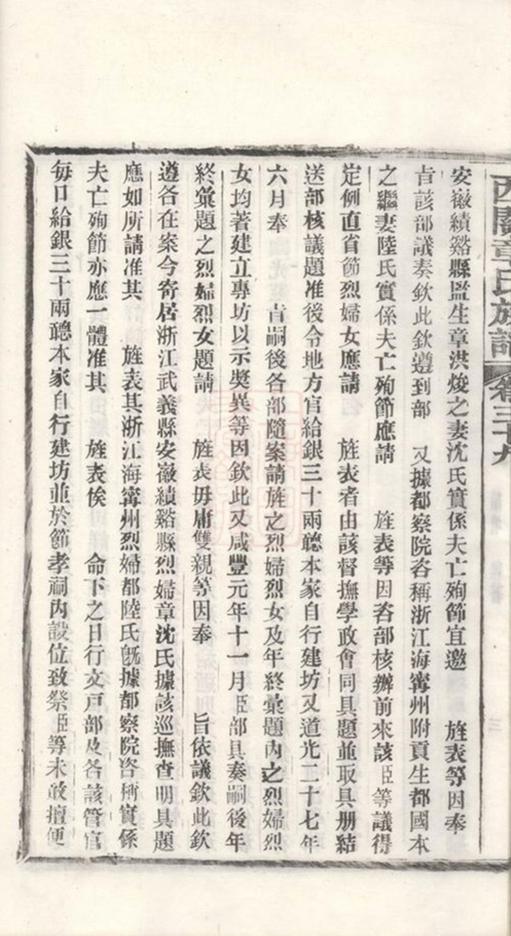 西關章氏族譜 卷三十九
安徽績谿縣監生章洪焌之妻沈氏實係夫亡殉節宜邀 旌表等因奉
旨該部議奏欽此欽遵到部 又據都察院咨稱浙江海寗州附貢生都國本
之繼妻陸氏實係夫亡殉節應請 旌表等因咨部核辦前來該臣等議得
定例直省節烈婦女應請 旌表者由該督撫學政會同具題並取具册結
送部核議題准後令地方官給銀三十兩聽本家自行建坊又道光二十七年
六月奉 旨嗣後各部隨案請旌之烈婦烈女及年終彙題內之烈婦烈
女均著建立專坊以示奬異等因欽此又咸豐元年十一月臣部具奏嗣後年
終彙題之烈婦烈女題請 旌表毋庸雙親等因奉 旨依議欽此欽
遵各在案今寄居浙江武義縣安徽績谿縣烈婦章沈氏據該巡撫查明具題
應如所請准其 旌表其浙江海寗州烈婦都陸氏旣據都察院咨稱實係
夫亡殉節亦應一體准其 旌表俟 命下之日行文戸部及各該管官
每口給銀三十兩聽本家自行建坊並於節孝祠內設位致祭臣等未敢擅便
三